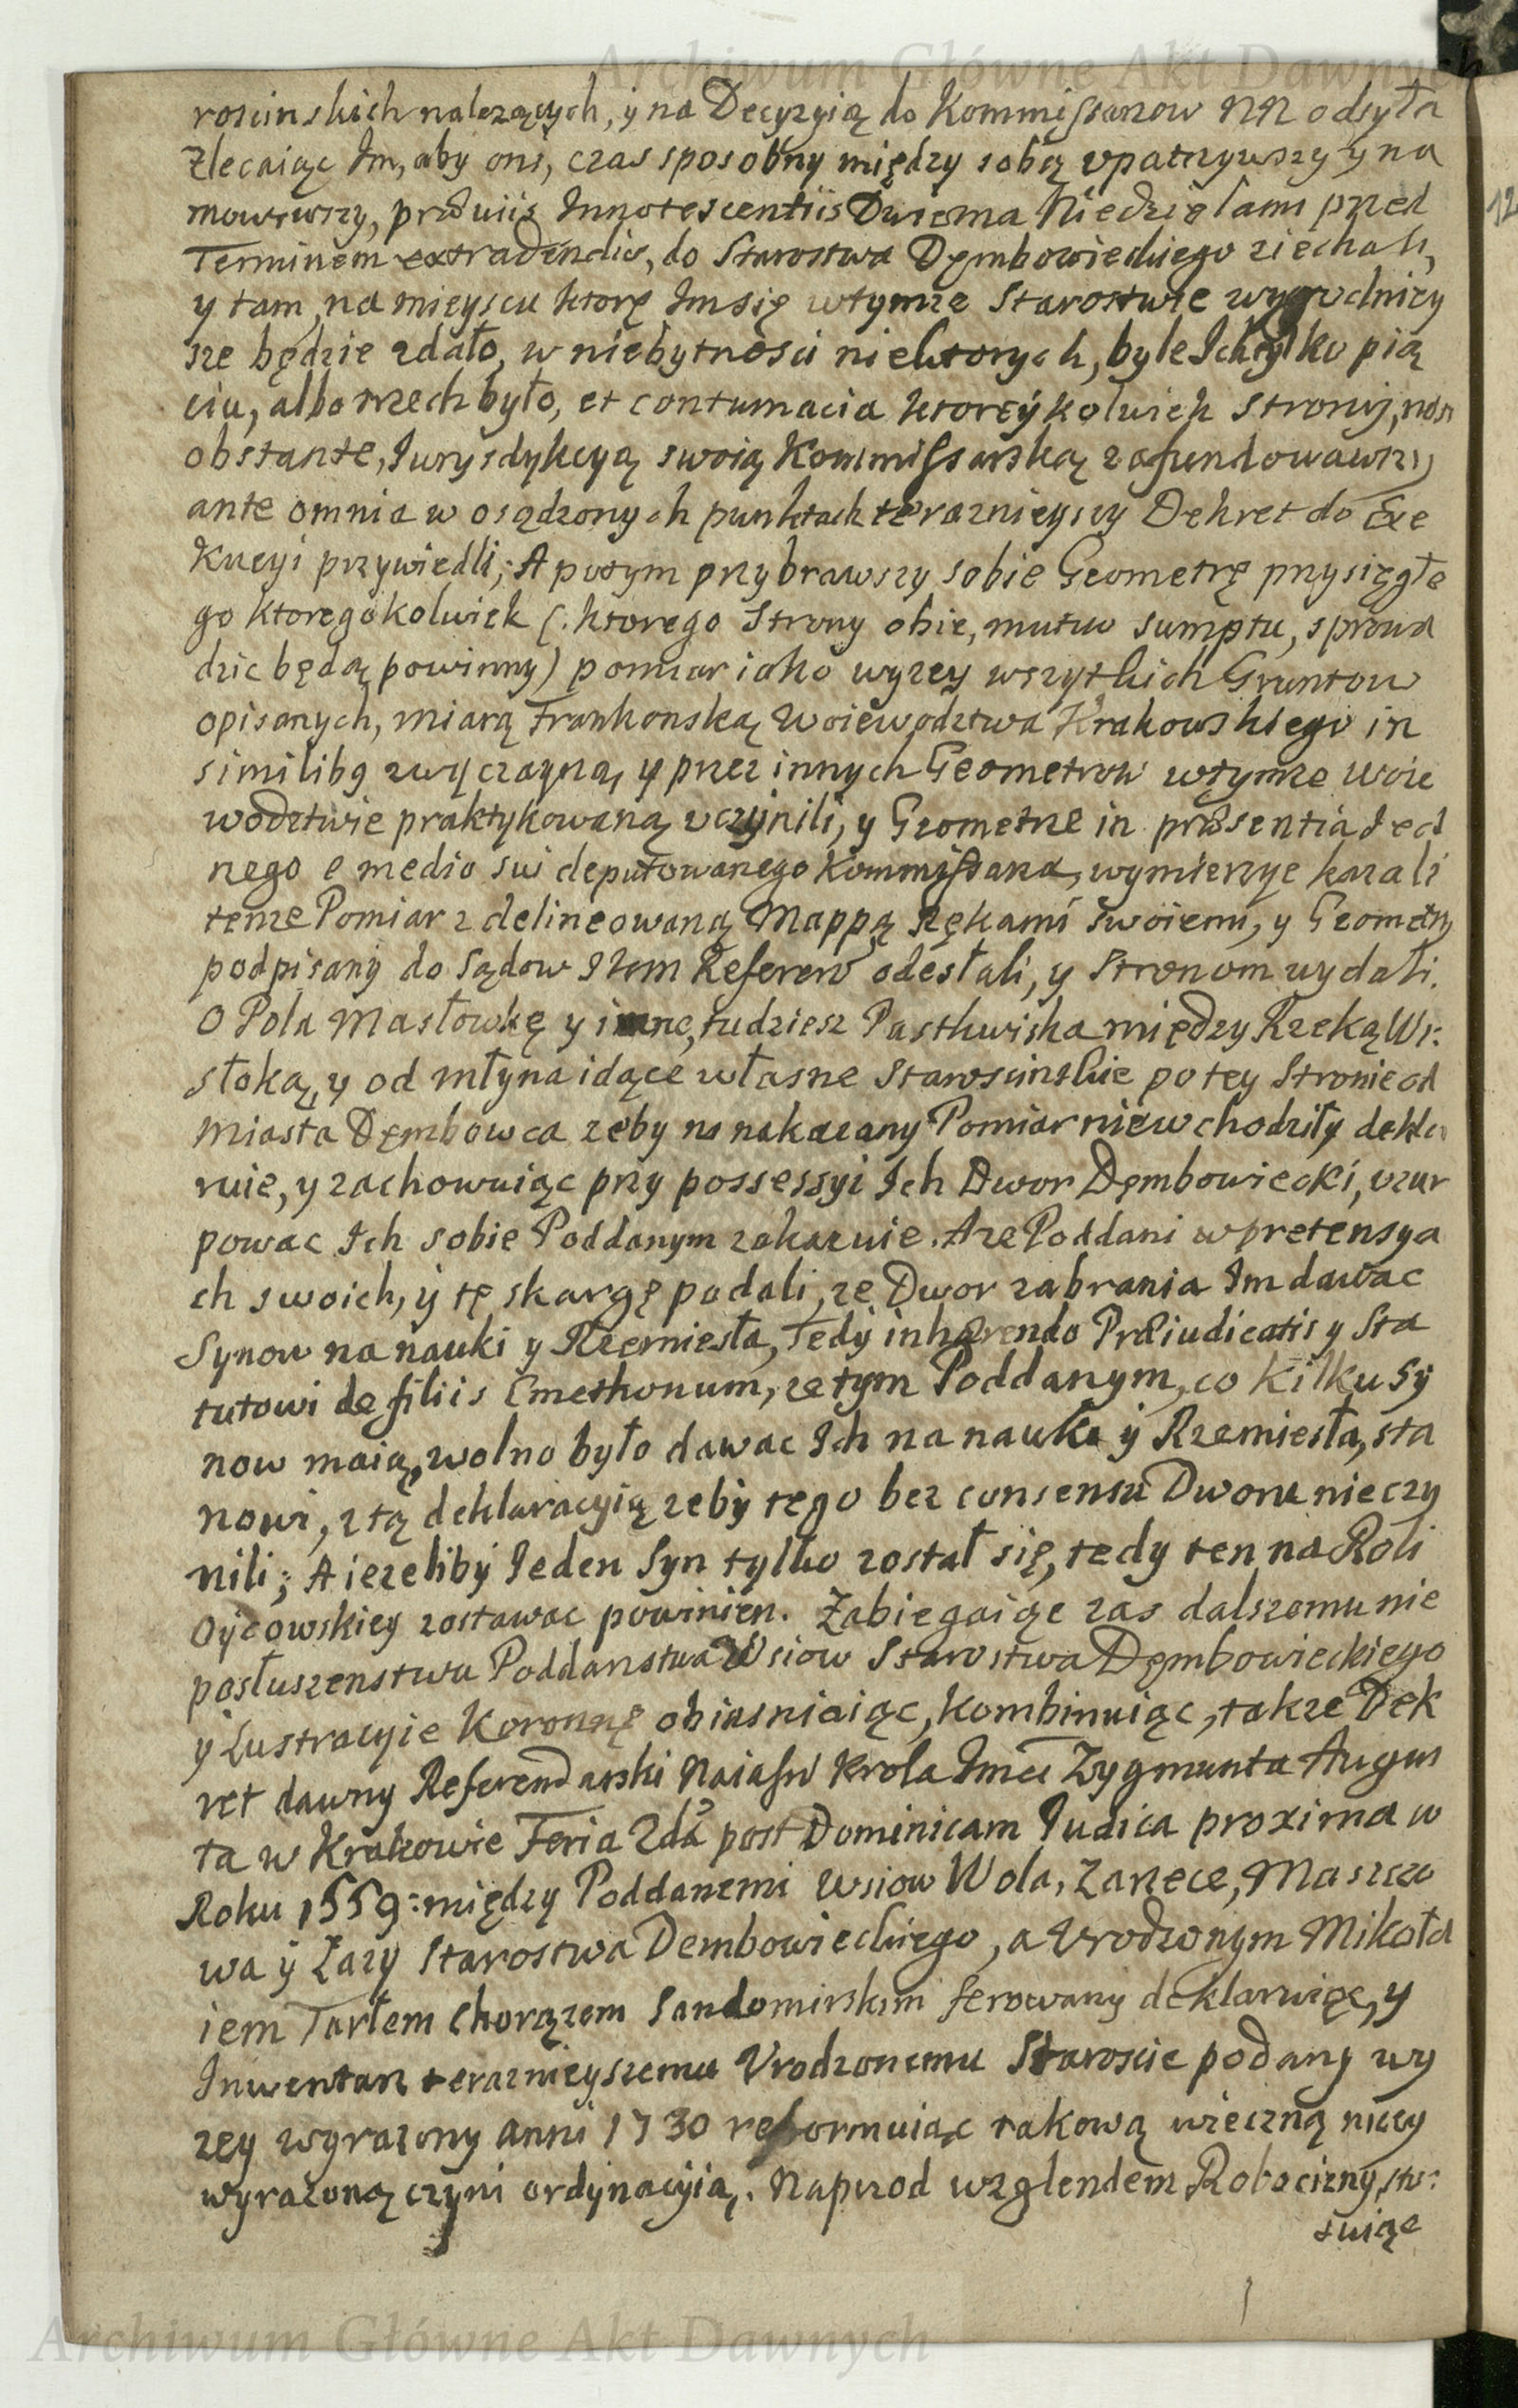 Archiwum Główne Akt Dawnych
roscinskich nalezących, y na Decyzyią do Kommissarzow NN odsyła
Zlecaiąc Im, aby oni, czas sposobny między sobą upatrzywszy y na
mowiwszy, præviis Innotescentiis Dwiema Niedzielami przed
Terminem extradendis, do Starostwa Dębowieckiego ziechali,
y tam, na mieyscu ktorę Im się wtymze Starostwie wygodniey
sze będzie zdało, w niebytnosci niektorych, byle Ich tylko pią
ciu, albo trzech było, et contumacia ktoreykolwiek Strony, non
obstante, Iurysdykcyą swoią Kommissarską zafundowawszy,
ante omnia w osądzonych punktach terazniejszy Dekret do Exe
kucyi przywiedli; A potym przybrawszy sobie Geometrę przysięgłe
go ktoregokolwiek (: ktorego Strony obie, mutuo sumptu, sprowa
dzic będą powinny) pomiar iako wyzey wszytkich Gruntow
opisanych, miarą Frankonską Woiewodztwa Krakowskiego in
similibg zwyczayną, y przez innych Geometrow wtymze Woie
wodztwie praktykowaną uczynili, y Geometrze in præsentia Ied
nego e medio sui deputowanego Kommissarza, wymierzyc kazali
tenze Pomiar z delineowaną Mappą Rękami swoiemi, y Geometry
podpisany do Sądow Nrm Referen odesłali, y Stronom wydali.
O Pola Masłowkę y inne, tudziesz Pastwiska między Rzeką Wi:
słoką, y od młyna idące własne Staroscinskie po tey Stronie od
Miasta Dęmbowca zeby na nakazany Pomiar niewchodziły dekla
ruie, y zachowuiąc przy possessyi Ich Dwor Dęmbowiecki, uzur
powac Ich sobie Poddanym zakazuie. A ze Poddani w pretensya
ch swoich, y tę skargę podali, ze Dwor zabrania Im dawac
Synow na nauki y Rzemiesła, Tedy inhærendo Præiudicatis y Sta
tutowi de filiis Cmethonum, ze tym Poddanym, co kilku Sy
now maią, wolno było dawac Ich na nauki y Rzemiesła, sta
nowi, z tą deklaracyią zeby tego bez consensu Dworu nie czy
nili; A iezeliby Ieden Syn tylko został się, tedy ten na Roli
Oycowskiey zostawac powinien. Zabiegaiąc zas dalszemu nie
posłuszenstwu Poddanstwa Wsiow Starostwa Dęmbowieckiego
y Lustracyie Koronnę obiasniaiąc, kombinuiąc, takze Dek
ret dawny Referendarski Naiasn Krola Imci Zygmunta Augus
ta w Krakowie Feria 2da post Dominicam Iudica proxima w
Roku 1559: między Poddanemi Wsiow Wola, Zarzece, Maszczo
wa y Łazy Starostwa Dembowieckiego, a Urodzonym Mikoła
iem Tarłem Chorązem Sandomirskim ferowany deklaruiąc, y
Inwentarz terazniejszemu Urodzonemu Staroscie podany wy
zey wyrazony anni 1730 reformuiąc takową wieczną nizey
wyrazoną czyni ordynacyią. Naprzod wzglendem Robocizny, sto:
suiąc
12
Archiwum Główne Akt Dawnych